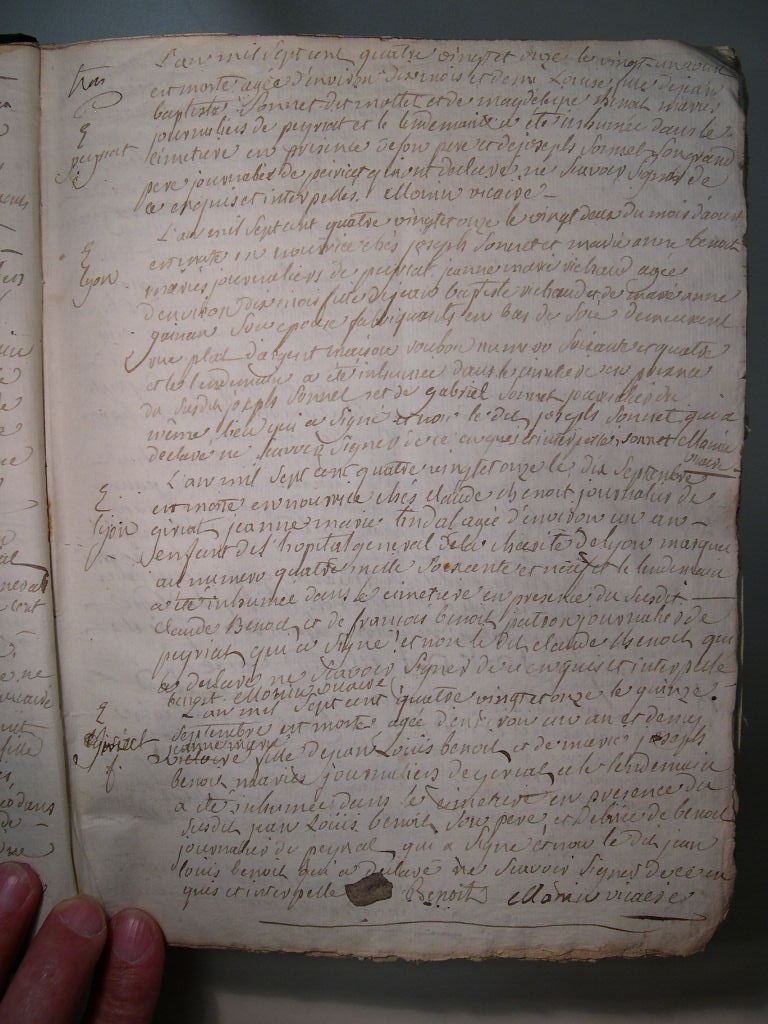 L'an mil sept cent quatre vingt et onze le vingt un aout
trois
est morte agée d'environ dix mois et demi Louise fille de jean
baptiste Sonnet dit mollet et de magdeleine benoit mariés
E
peyriat
journaliers de peyriat et le lendemain a été inhumée dans le
cimetiere en presence de son pere et de joseph sonnet son grand
pere journalier de peiriat qui ont declaré ne scavoir signer de
ce enquis et interpellés. Morin vicaire
L'an mil sept cent quatre vingt et onze le vingt deux du mois d'aout
E
lyon
est morte en nourrice chés joseph Sonnet et marie anne benoit
mariés journaliers de peyriat jeanne marie richaud agée
d'environ dix mois fille de jean baptiste richaud et de marie anne
son epouse fabriquants en bas de soie demeurant
rue plat d'argent maison numero soixante et quatre
et le lendemain a été inhumée dans le cimetiere en presence
du susdit joseph Sonnet et de gabriel Sonnet journalier du
même lieu qui a signé et non le dit joseph Sonnet qui a
declaré ne scavoir signer de ce enquis et interpellé. sonnet Morin
vicaire
L'an mil sept cent quatre vingt et onze le dix septembre
E
lyon
est morte en nourrice chés claude benoit journalier de
giriat jeanne marie tindal agée d'environ un an
enfant de l'hopital general de la charité de lyon marquée
au numero quatre mille soixante et neuf et le lendemain
a été inhumée dans le cimetiere en presence du susdit
claude Benoit et de francois benoit patron journalier de
peyriat qui a signé et non le dit claude benoit qui
a declaré ne scavoir signer de ce enquis et interpellé
benoit Morin vicaire
L'an mil sept cent quatre vingt et onze le quinze
E
giriat
f
septembre est morte agée d'environ un an et demy
jeanne marie
victoire fille de jean Louis benoit et de marie joseph
benoit mariés journaliers de giriat et le lendemain
a été inhumée dans le cimetiere en presence du
susdit jean Louis benoit son pere et de benoit
journalier de peyriat qui a signé et non le dit jean
louis benoit qui a declaré ne scavoir signer de ce en
quis et interpellé Benoit Morin vicaire